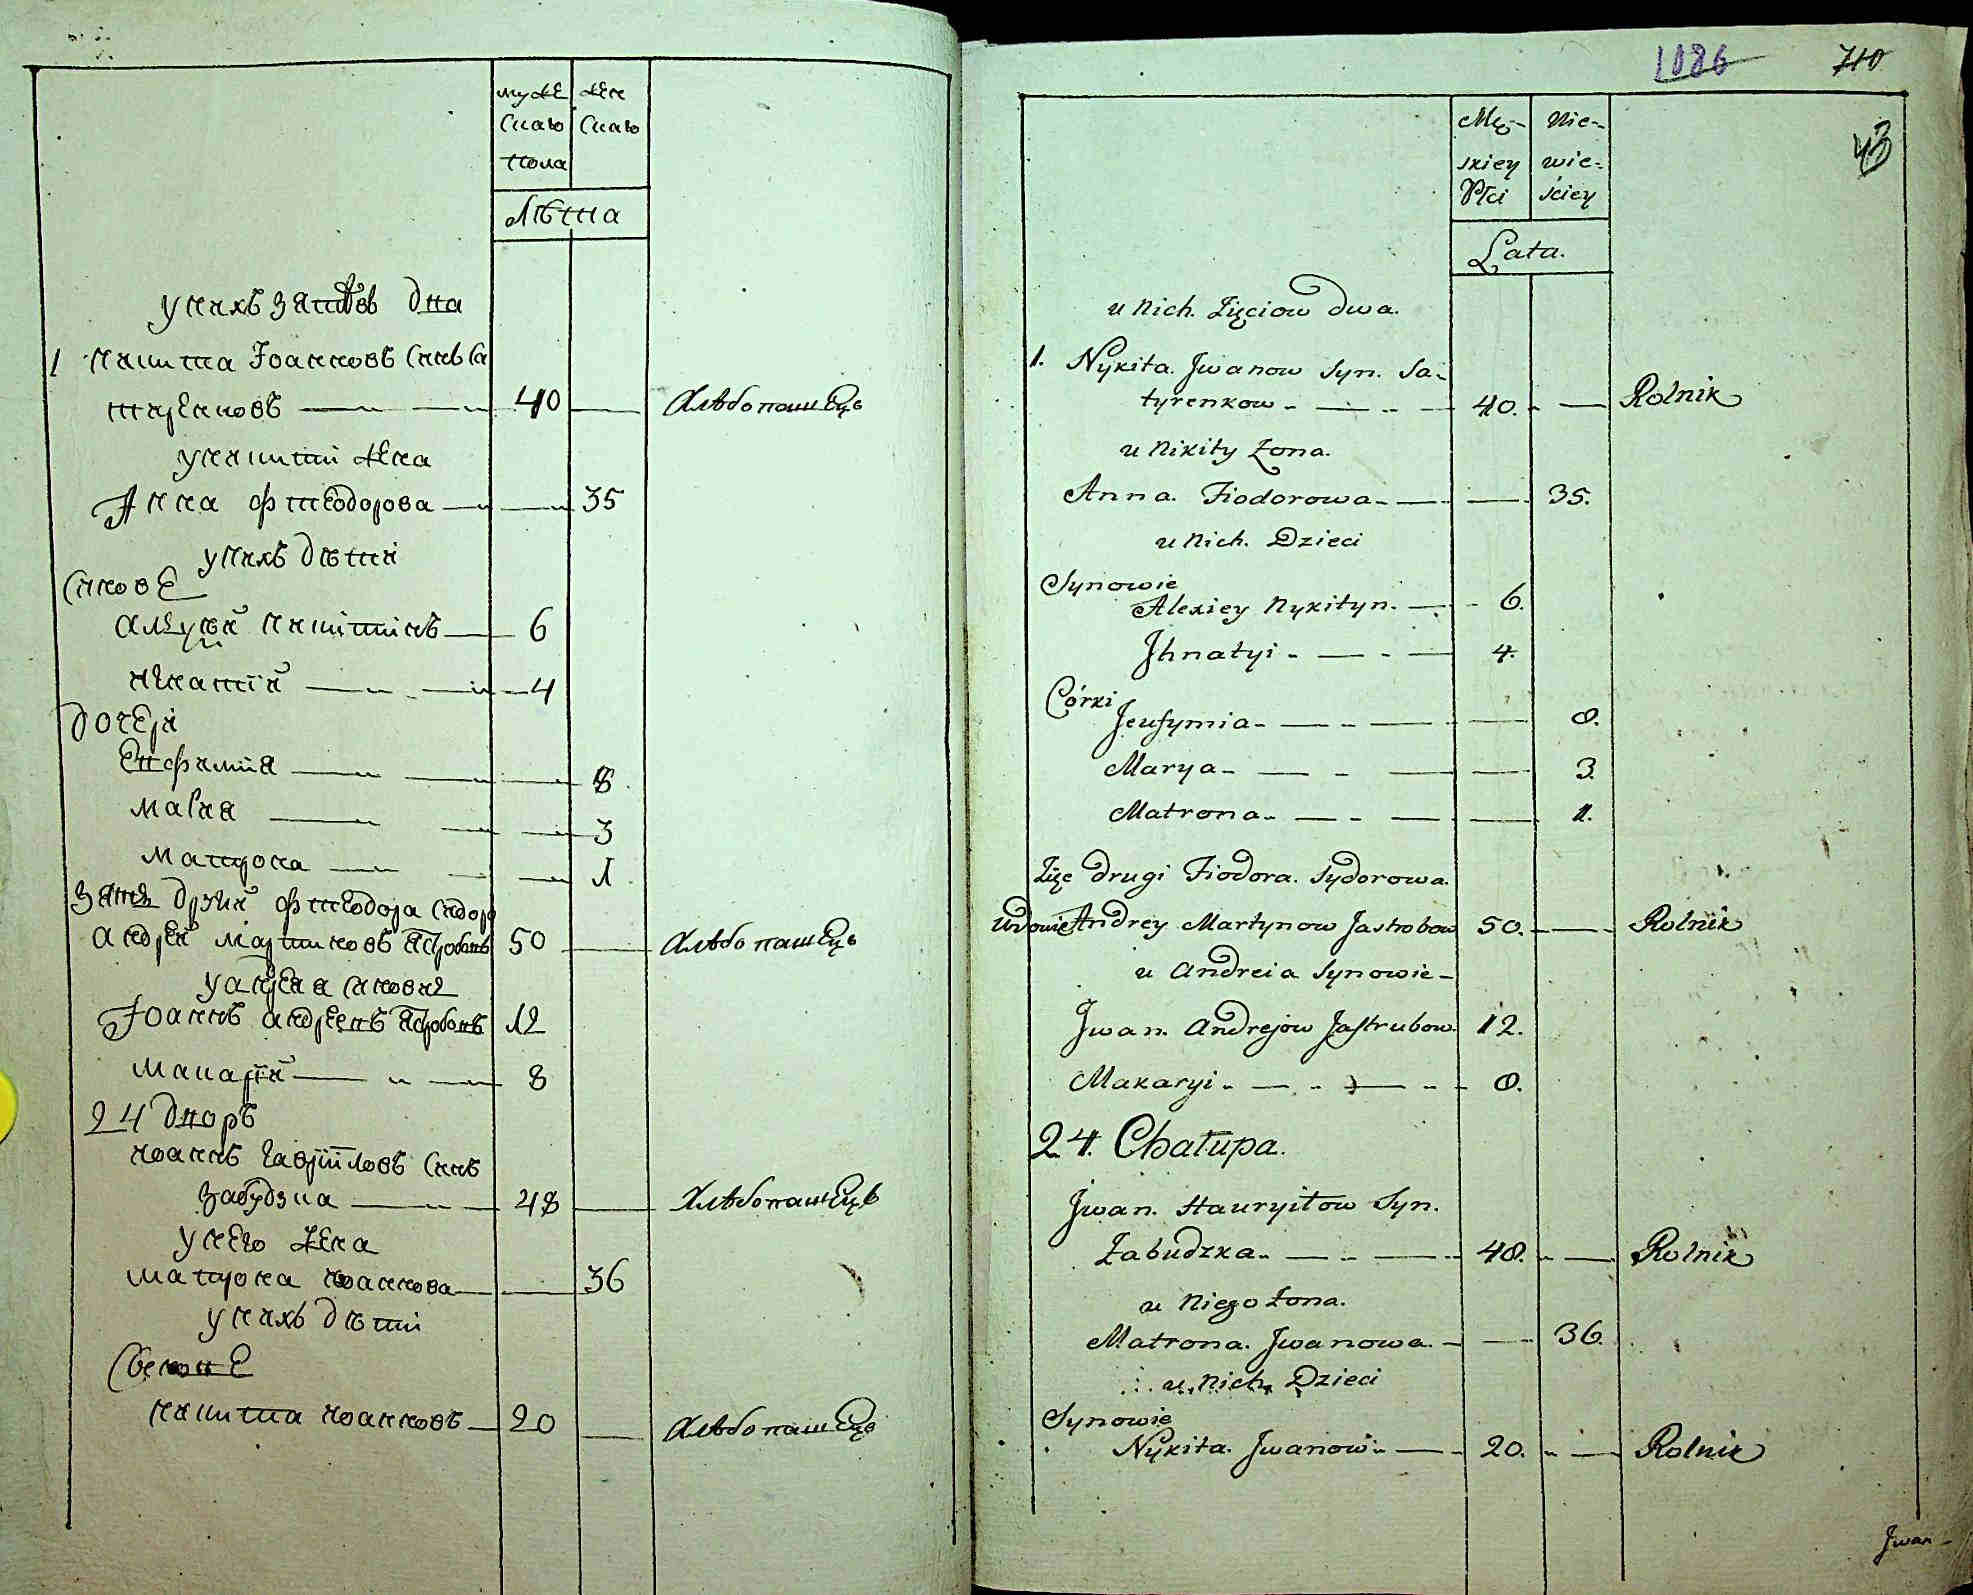 муже
скаго
пола
жен
скаго
Лѣта
у нихъ зятѣвъ два
1 никита Іоанновъ синъ са
тыренковъ 40 хлѣбопашецъ
у никиты жена
Анна фтеодорова 35
у нихъ дѣти
синове
алеѯѣй никитинъ 6
игнатій 4
дочери
евфимія 8
марія 3
матрона 1
зять другій фтеодора сидоро
андрей мартиновъ ястробовъ 50 хлѣбопашецъ
у андрея синовя
Іоаннъ андреевъ ястробовъ 12
макарій 8
24 дворъ
иоаннъ гавріиловъ синъ
забудзка 48 хлѣбопашецъ
у него жена
матрона иоаннова 36
у нихъ дѣти
никита иоанновъ 20 хлѣбопашецъ
1086 710
43
Mę-
skiey
Płci
Nie-
wie-
sciey
Lata.
u nich. Zięciow dwa.
1. Nykita. Jwanow syn. Sa-
tyrenkow 40. Rolnik
u Nikity żona.
Anna. Fiodorowa 35.
u nich. Dzieci
Synowie
Alexiey Nykityn. 6.
Jhnatyi 4.
Córki
Jeufymia 8.
Marya 3.
Matrona 1.
Zięć drugi Fiodora. Sydorowa.
Wdowiec Andrey Martynow Jastrobow 50. Rolnik
u Andreia Synowie
Jwan. Andrejow Jastrubow. 12.
Makaryi 8.
24. Chałupa.
Jwan. Hauryiłow Syn.
Zabudzka 48. Rolnik
u Niego Żona.
Matrona. Jwanowa. 36.
u nich. Dzieci
Synowie
Nykita. Jwanow 20. Rolnik
Jwan